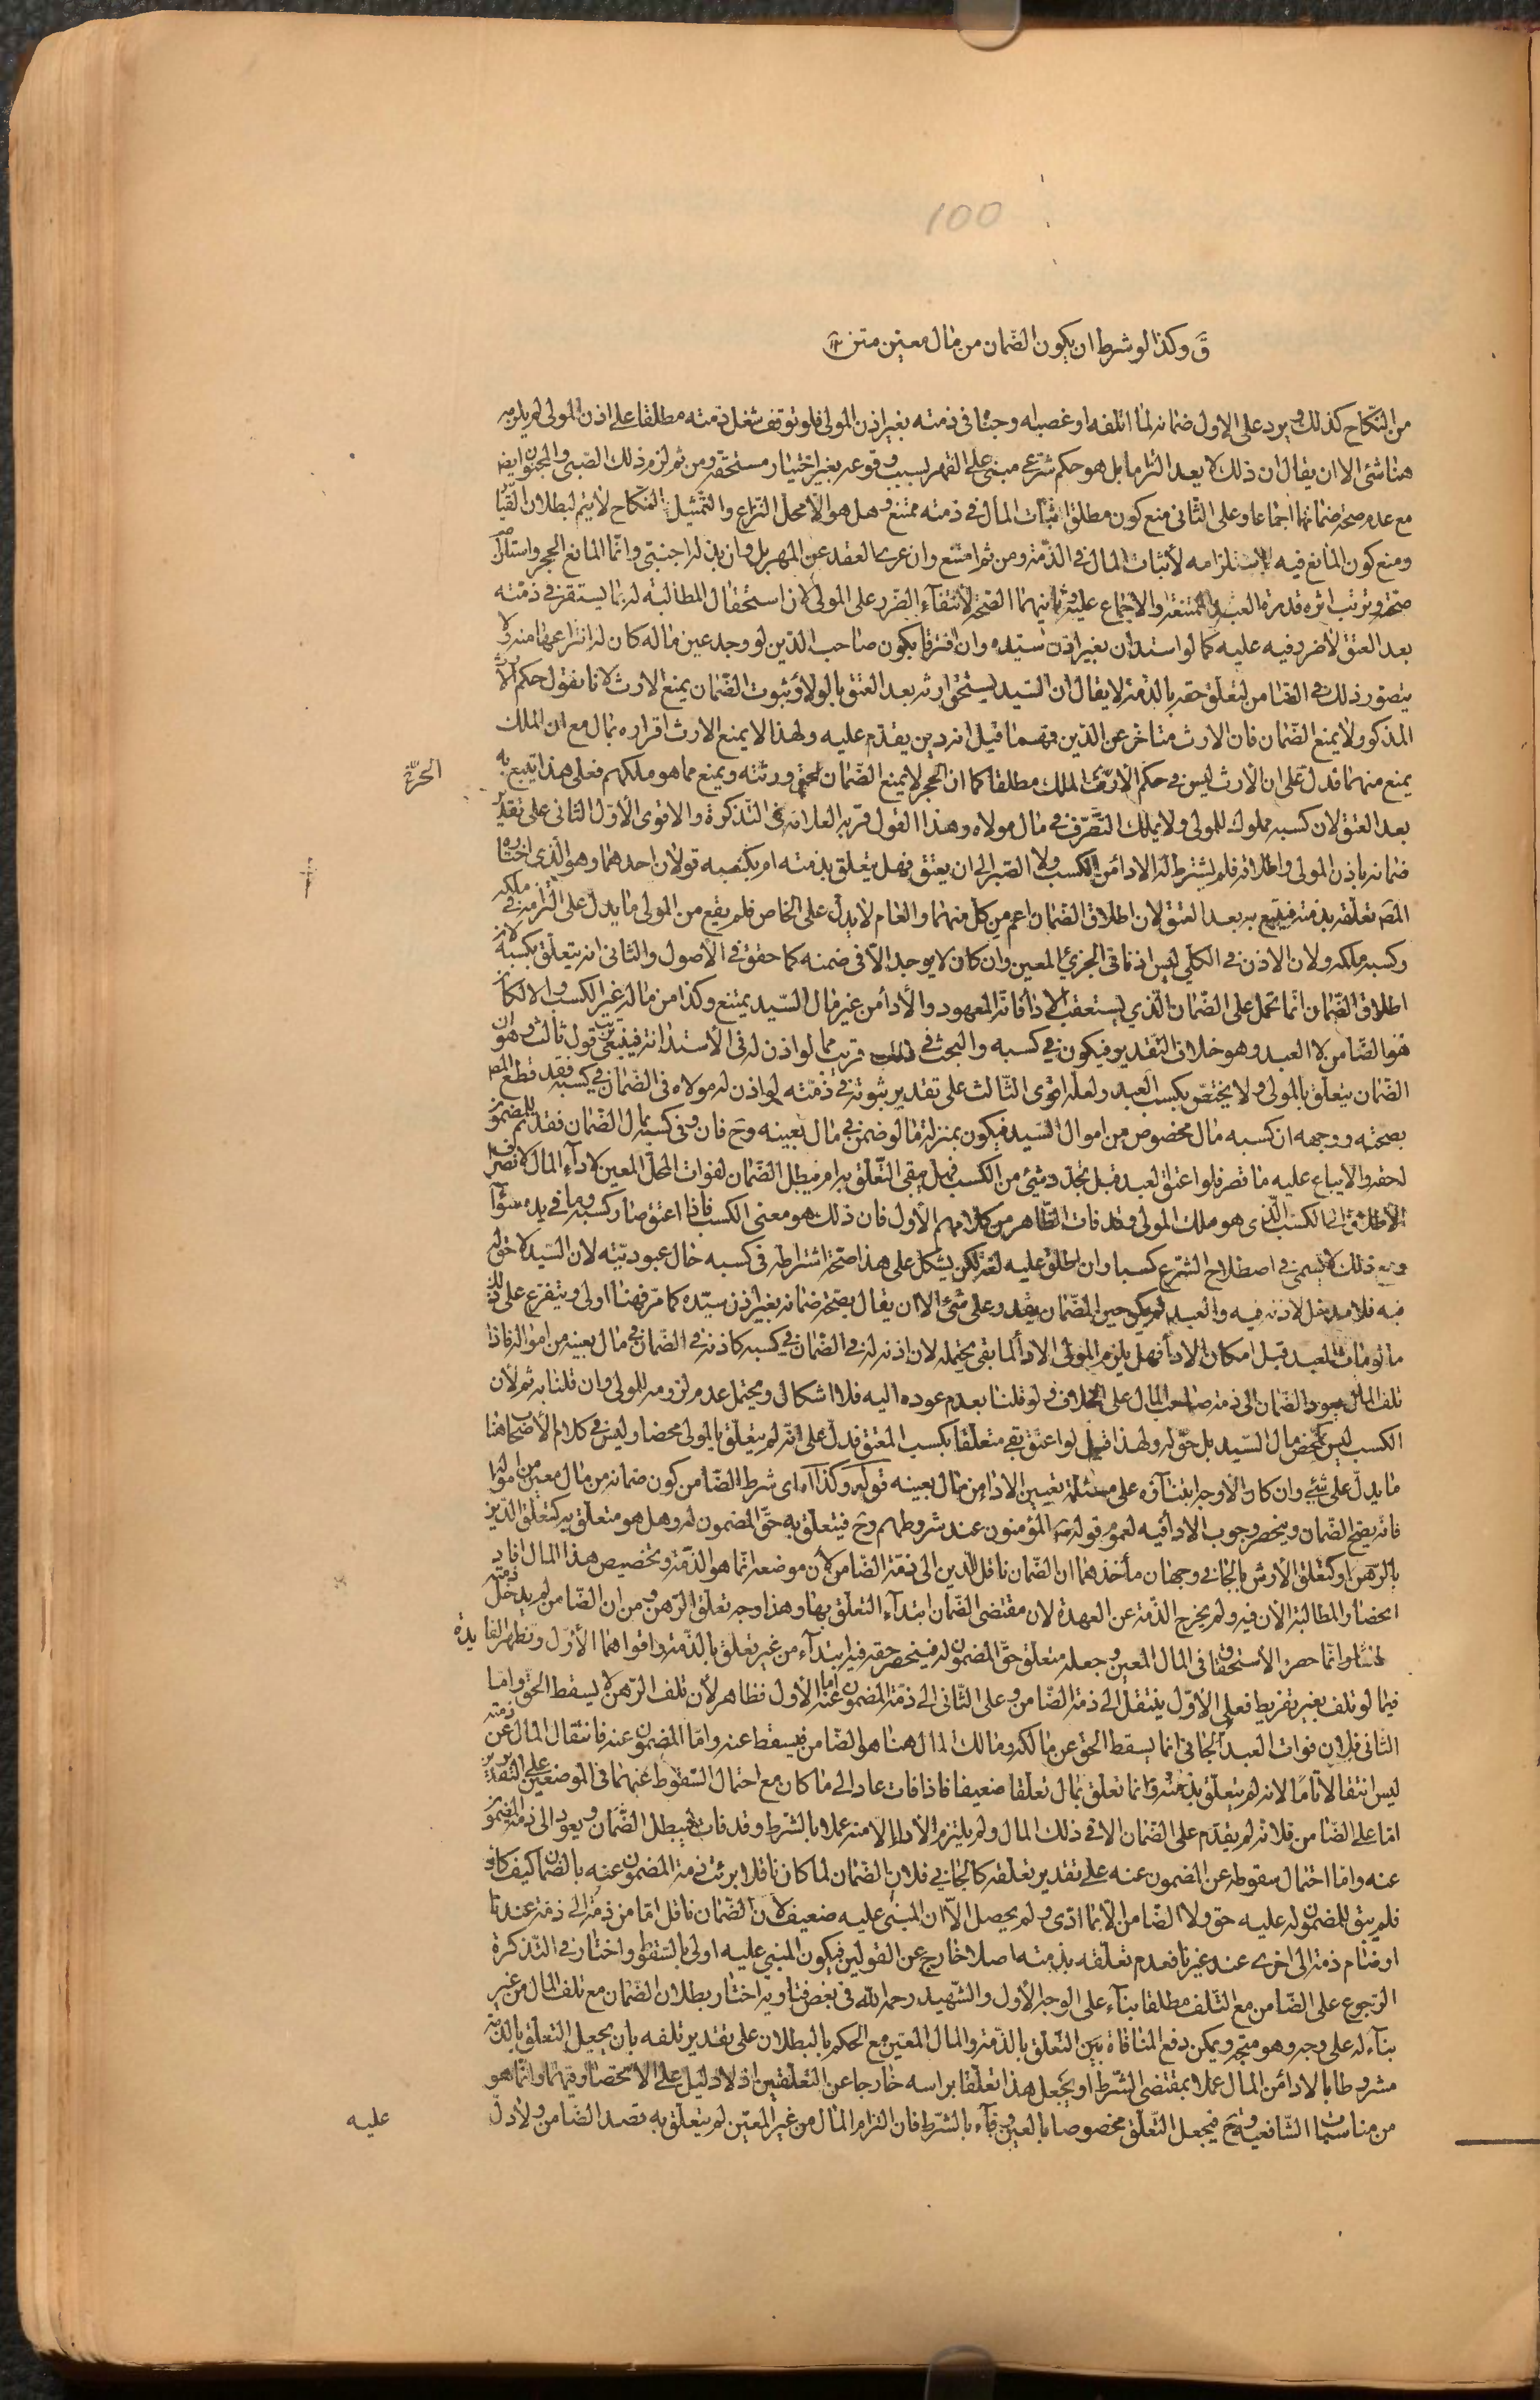 100
قَ وكذا لو شرط ان يكون الضمان من مال معين متن
من النكاح كذلك ويرد على الاول ضمانه لما اتلفه او غصبه او جناه في ذمته بغير اذن المولى فلو توقف شغل ذمته مطلقا على اذن المولى لم يلزمه
هنا شئ الا ان يقال ان ذلك لا يعد التزاما بل هو حكم شرعي مبني على القهر لسبب وقوعه بغير اختيار مستحقه ومن ثم لزم ذلك الصبي والمجنون ايضا
مع عدم صحة ضمانهما اجماعا وعلى الثاني منع كون مطلق اثبات المال في ذمته ممتنع وهل هو الا محل النزاع والتمثيل بالنكاح لا يتم لبطلان القياس
ومنع كون المانع فيه استلزامه لاثبات المال في الذمة ومن ثم امتنع وان عرى العقد عن المهر بل وان بذله اجنبي وانما المانع الحجر واستلزام
صحته وترتب اثره قدرة العبد الممتنعة والاجماع عليه وثانيهما الصحة لانتفاء الضرر على المولى لان استحقاق المطالبة له بما يستقر في ذمته
بعد العتق لا ضرر فيه عليه كما لو استدان بغير اذن سيده وان افترقا بكون صاحب الدين لو وجد عين ماله كان له انتزاعها منه ولا
يتصور ذلك في الضامن لتعلق حقه بالذمة لا يقال ان السيد يستحق ارثه بعد العتق بالولاء وثبوت الضمان يمنع الارث لانا نقول حكم الارث
المذكور لا يمنع الضمان فان الارث متاخر عن الدين فمهما قيل انه دين يقدم عليه ولهذا لا يمنع الارث اقراره بمال مع ان الملك
يمنع منهما فدل على ان الارث ليس في حكم الارث الملك مطلقا كما ان الحجر لا يمنع الضمان لحق ورثته ويمنع مما هو ملكهم فعلى هذا يتبع به
الحرية
بعد العتق لان كسبه مملوك للمولى ولا يملك التصرف في مال مولاه وهذا القول قربه العلامة في التذكرة والاقوى الاول الثاني على تقدير
ضمانه باذن المولى واطلاقه فلم يشترط له الاداء من الكسب ولا الصبر الى ان يعتق فهل يتعلق بذمته ام بكسبه قولان احدهما وهو الذي اختاره
المص تعلقه بذمته فيتبع به بعد العتق لان اطلاق الضمان اعم من كل منهما والعام لا يدل على الخاص فلم يقع من المولى ما يدل على التزامه في ملكه
وكسبه ملكه ولان الاذن في الكلي ليس اذنا في الجزئي المعين وان كان لا يوجد الا في ضمنه كما حقق في الاصول والثاني انه يتعلق بكسبه لان
اطلاق الضمان انما يحمل على الضمان الذي يستعقب الاداء فانه المعهود والاداء من غير مال السيد يمتنع وكذا من ماله غير الكسب والا لكان
هو الضامن لا العبد وهو خلاف التقدير فيكون في كسبه والبحث في ذلك قريب مما لو اذن له في الاستدانة فينبغي ترتب قول ثالث وهو ان
الضمان يتعلق بالمولى ولا يختص بكسب العبد ولعله اقوى الثالث على تقدير ثبوته في ذمته لو اذن له مولاه في الضمان في كسبه فقد قطع المص
بصحته ووجهه ان كسبه مال مخصوص من اموال السيد فيكون بمنزلة ما لو ضمن في مال بعينه وح فان وفى كسبه بمال الضمان فقد تم للمضمون
لحقه والا ضاع عليه ما قصر فلو اعتق العبد قبل تجدد شئ من الكسب فهل يبقى التعلق به ام يبطل الضمان لفوات المحل المعين لاداء المال لانصراف
الاطلاق الى الكسب الذي هو ملك المولى وقد فات الظاهر من كلامهم الاول فان ذلك هو معنى الكسب فاذا اعتق صار كسبه وما في يده سواء
ومع ذلك لا يسمى في اصطلاح الشرع كسبا وان اطلق عليه لغة لكن يشكل على هذا صحة اشتراطه في كسبه حال عبوديته لان السيد لا حق له
فيه فلا مدخل لاذنه فيه والعبد لم يكن حين الضمان يقدر على شئ الا ان يقال بصحة ضمانه بغير اذن سيده كما مر فهنا اولى ويتفرع على ذلك
ما لو مات العبد قبل امكان الاداء فهل يلزم المولى الاداء لما بقي يحتمله لان اذنه له في الضمان في كسبه كاذنه في الضمان في مال بعينه من امواله فاذا
تلف المال يعود الضمان الى ذمة صاحب المال على الخلاف ولو قلنا بعدم عوده اليه فلا اشكال ويحتمل عدم لزومه للمولى وان قلنا به ثم لان
الكسب ليس بمحض مال السيد بل حق له ولهذا قيل لو اعتق بقي متعلقا بكسب المعتق فدل على انه لم يتعلق بالمولى محضا وليس في كلام الاصحاب هنا
ما يدل على شئ وان كان الاوجه ابتناؤه على مسئلة تعيين الاداء من مال بعينه قوله وكذا اه اى شرط الضامن كون ضمانه من مال معين من امواله
فانه يصح الضمان وينحصر وجوب الاداء فيه لعموم قوله ص المؤمنون عند شروطهم وح فيتعلق به حق المضمون له وهل هو متعلق به كتعلق الدين
بالرهن او كتعلق الارش بالجاني وجهان مأخذهما ان الضمان ناقل للدين الى ذمة الضامن لان موضعه انما هو الذمة وتخصيص هذا المال افاد
انحصار المطالبة الان فيه ولم يخرج الذمة عن العهدة لان مقتضى الضمان ابتداء التعلق بها وهذا وجه تعلق الرهن ومن ان الضامن لم يدخل ذمته
مطلقا وانما حصر الاستحقاق في المال المعين وجعله متعلق حق المضمون له فينحصر حقه فيه ابتداء من غير تعلق بالذمة واقواهما الاول وتظهر الفايدة
فيما لو تلف بغير تفريط فعلى الاول ينتقل الى ذمة الضامن وعلى الثاني الى ذمة المضمون عنه اما الاول فظاهر لان تلف الرهن لا يسقط الحق واما
الثاني فلان فوات العبد الجاني انما يسقط الحق عن مالكه ومالك المال هنا هو الضامن فيسقط عنه واما المضمون عنه فانتقال المال عن ذمته
ليس انتقالا تاما لانه لم يتعلق بذمته وانما تعلق بمال تعلقا ضعيفا فاذا فات عاد الى ما كان مع احتمال السقوط عنهما في الموضعين على التقديرين
اما على الضامن فلانه لم يقدم على الضمان الا في ذلك المال ولم يلتزم الاداء الا منه عملا بالشرط وقد فات فيبطل الضمان ويعود الى ذمة المضمون
عنه واما احتمال سقوطه عن المضمون عنه على تقدير تعلقه كالجاني فلان الضمان لما كان ناقلا برئت ذمة المضمون عنه بالضمان كيف كان
فلم يبق للمضمون له عليه حق ولا الضامن الا بما ادى ولم يحصل الا ان المبنى عليه ضعيف لان الضمان ناقل اما من ذمة الى ذمة عندنا
او ضام ذمة الى اخرى عند غيرنا فعدم تعلقه بذمته اصلا خارج عن القولين فيكون المبني عليه اولى بالسقوط واختار في التذكرة
الرجوع على الضامن مع التلف مطلقا بناء على الوجه الاول والشهيد رحمه الله في بعض فتاويه اختار بطلان الضمان مع تلف المال من غير
بناء له على وجه وهو متجه ويمكن دفع المنافاة بين التعلق بالذمة والمال المعين مع الحكم بالبطلان على تقدير تلفه بان يجعل التعلق بالذمة
مشروطا بالاداء من المال عملا بمقتضى الشرط او يجعل هذا تعلقا براسه خارجا عن التعلقين اذ لا دليل على الانحصار فيهما وانما هو
من مناسبات الشافعية وح فيجعل التعلق مخصوصا بالعين وفاء بالشرط فان التزام المال من غير المعين لم يتعلق به قصد الضامن ولا دل
عليه